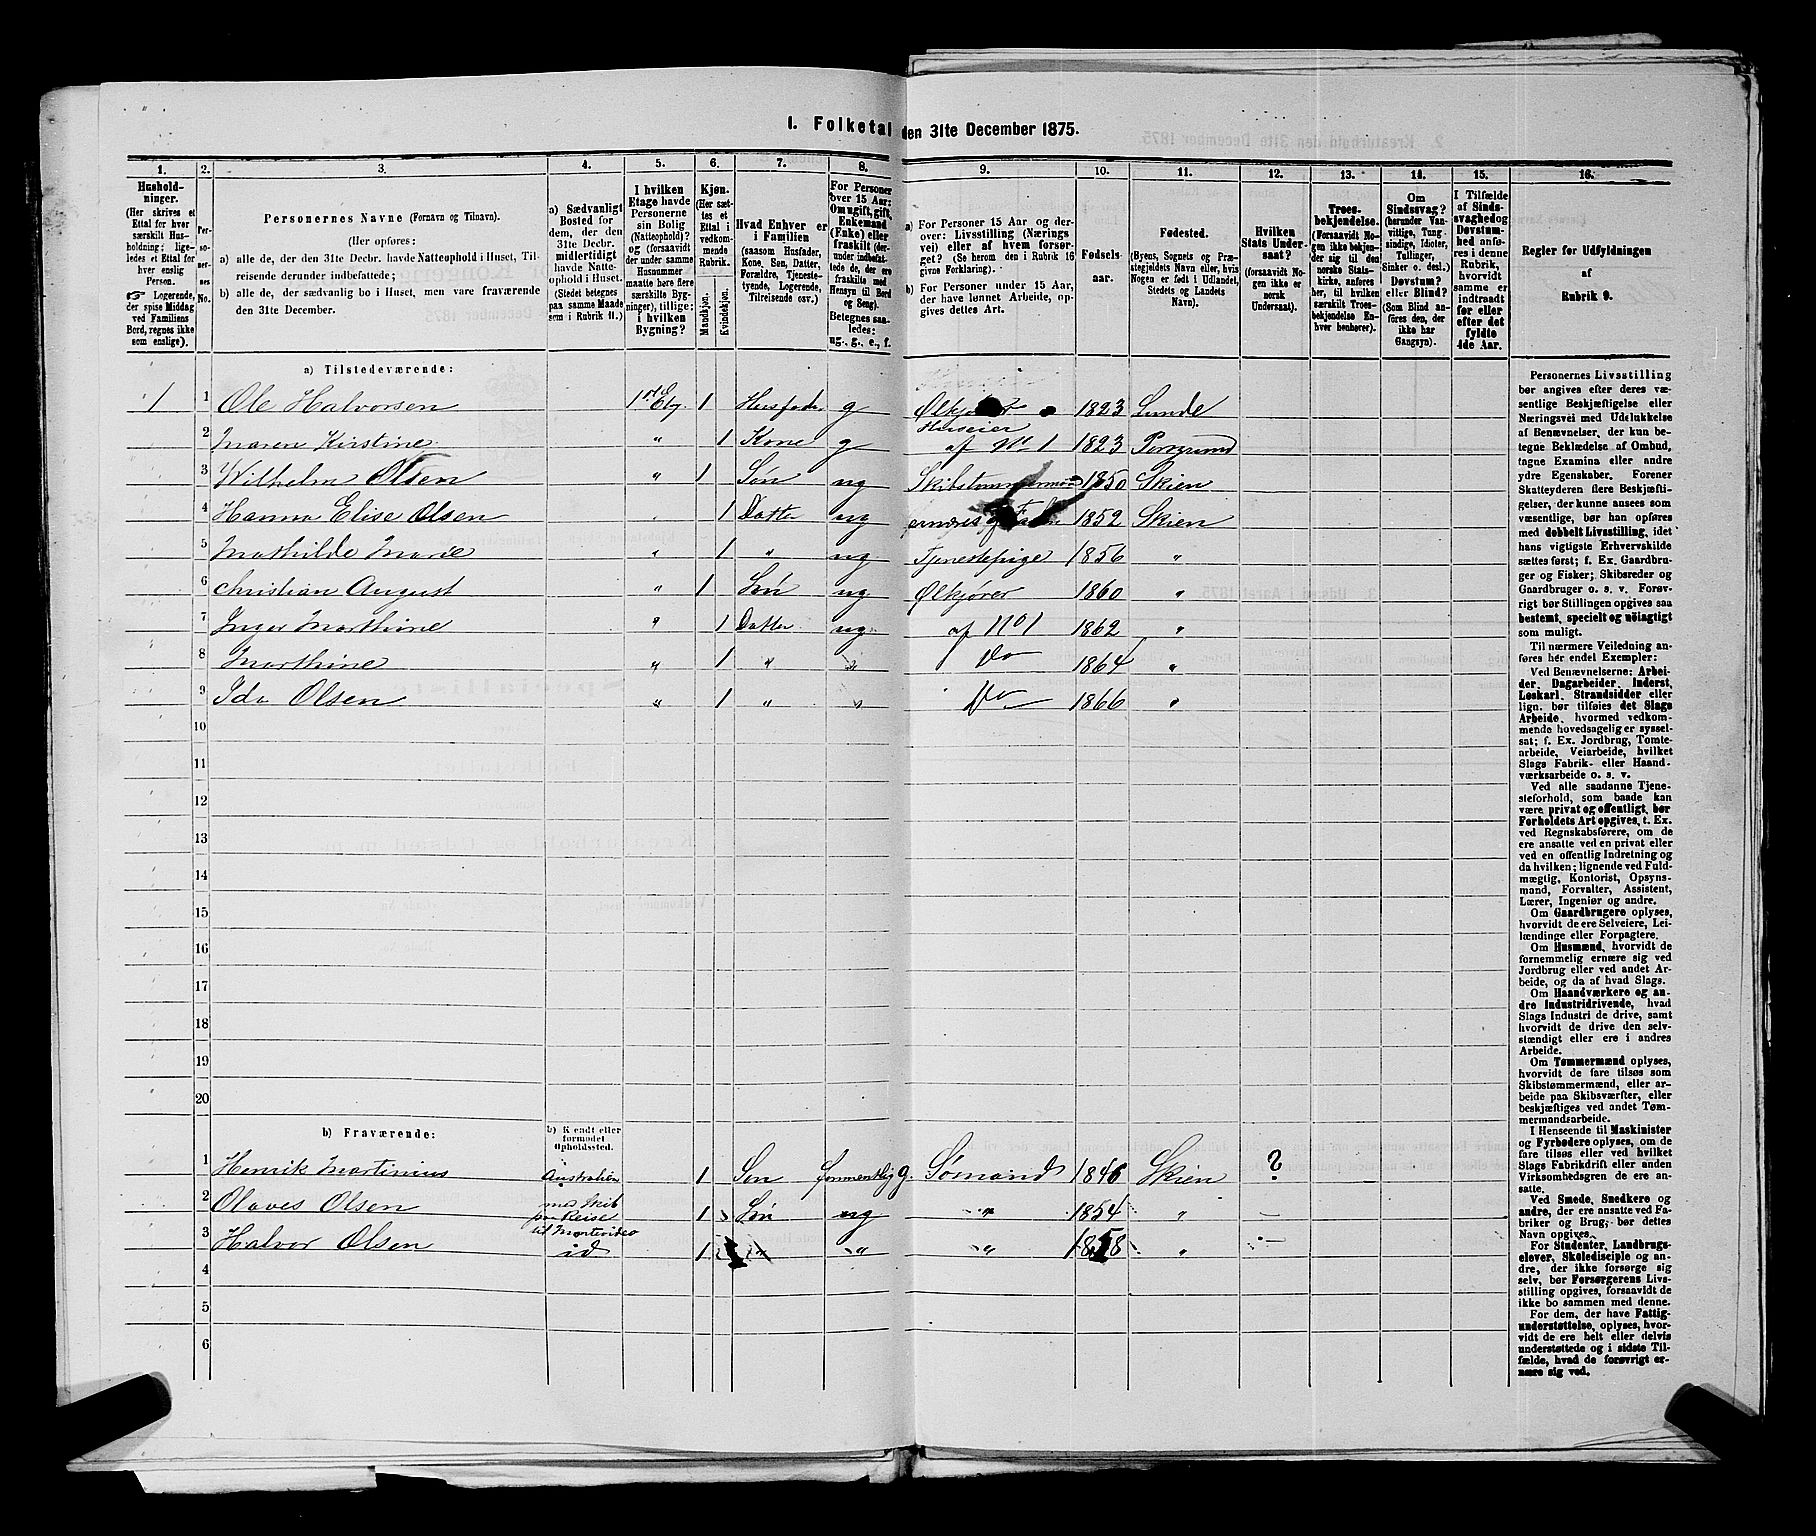 I. Folketal den 31te December 1875.
1. 2. 3. 4. 5. 6. 7. 8. 9. 10. 11. 12. 13. 14. 15. 16.
Hushold-
ninger.
(Her skrives et
Ettal for hver
særskilt Hus-
holdning; lige-
ledes et Ettal for
hver enslig
Person.
☞ Logerende,
der spise Middag
ved Familiens
Bord, regnes ikke
som enslige).
Per-
so-
ner-
nes
No.
Personernes Navne (Fornavn og Tilnavn).
(Her opføres:
a) alle de, der den 31te Decbr. havde Natteophold i Huset, Til-
reisende derunder indbefattede;
b) alle de, der sædvanlig bo i Huset, men vare fraværende
den 31te December.
a) Sædvanligt
Bosted for
dem, der den
31te Decbr.
midlertidigt
havde Natte-
ophold i Huset.
(Stedet betegnes
paa samme Maade
som i Rubrik 11.)
I hvilken
Etage havde
Personerne
sin Bolig
(Natteophold)?
og (forsaavidt
der under samme
Husnummer
maatte høre flere
særskilte Byg-
ninger), tillige:
i hvilken
Bygning?
Kjøn.
(Her sæt-
tes et
Ettal i
vedkom-
mende
Rubrik.
Mandkjøn.
Kvindekjøn.
Hvad Enhver er
i Familien
(saasom Husfader,
Kone, Søn, Datter,
Forældre, Tjeneste-
tyende, Logerende,
Tilreisende osv.)
For Personer
over 15 Aar:
Om ugift, gift,
Enkemand
(Enke) eller
fraskilt (der-
under indbefat-
tede de, der ere
fraskilte med
Hensyn til Bord
og Seng).
Betegnes saa-
ledes:
ug., g., e., f.
a) For Personer 15 Aar og der-
over: Livsstilling (Nærings
vei) eller af hvem forsør-
get? (Se herom den i Rubrik 16
givne Forklaring).
b) For Personer under 15 Aar,
der have lønnet Arbeide, op-
gives dettes Art.
Fødsels-
aar.
Fødested.
(Byens, Sognets og Præ-
stegjeldets Navn eller, hvis
Nogen er født i Udlandet,
Stedets og Landets
Navn).
Hvilken
Stats Under-
saat?
(forsaavidt No-
gen ikke er
norsk
Undersaat).
Troes-
bekjendelse.
(Forsaavidt No-
gen ikke bekjen-
der sig til den
norske Stats-
kirke, anføres
her, til hvilken
særskilt Troes-
bekjendelse En-
hver henhører).
Om
Sindssvag?
(herunder Van-
vittige, Tung-
sindige, Idioter,
Tullinger,
Sinker o. desl.)
Døvstum?
eller Blind?
(Som Blind an-
føres den, der
ikke har
Gangsyn).
I Tilfælde
af Sinds-
svaghed og
Døvstum-
hed anfø-
res i denne
Rubrik,
hvorvidt
samme er
indtraadt
før eller
efter det
fyldte
4de Aar.
Regler for Udfyldningen
af
Rubrik 9.
a) Tilstedeværende:
1 1 Ole Halvorsen 1ste Etg 1 Husfader g Ølkjører 1823 Lunde
Huseier
2 Maren Kirstine " 1 Kone g af No 1 1823 Porsgrund
3 Wilhelm Olsen " 1 Søn ug Skibstømmermand 1850 Skien
4 Hanna Elise Olsen " 1 Datter ug ernæres af Fader 1852 Skien
5 Mathilde Marie " 1 " ug Tjenestepige 1856 "
6 Christian August " 1 Søn ug Ølkjører 1860 "
7 Inger Marthine " 1 Datter ug af No 1 1862 "
8 Marthine " 1 " " Do 1864 "
9 Ida Olsen " 1 " " Do 1866 "
10
11
12
13
14
15
16
17
18
19
20
b) Fraværende:
b) Kjendt eller
formodet
Opholdssted.
1 Henrik Martinius Australien 1 Søn formentlig g. Sømand 1846 Skien ?
2 Olaves Olsen med Skib
paa Reise
til Montevideo 1 Søn ug " 1854 " —
3 Halvor Olsen id 1 " " " 1858 " —
4
5
6
Personernes Livsstilling
bør angives efter deres væ-
sentlige Beskjæftigelse eller
Næringsvei med Udelukkelse
af Benævnelser, der kun be-
tegne Beklædelse af Ombud,
tagne Examina eller andre
ydre Egenskaber. Forener
Skatteyderen flere Beskjæfti-
gelser, der kunne ansees som
væsentlige, bør han opføres
med dobbelt Livsstilling, idet
hans vigtigste Erhvervskilde
sættes først; f. Ex. Gaardbru-
ger og Fisker; Skibsreder og
Gaardbruger o. s. v. Forøv-
rigt bør Stillingen opgives saa
bestemt, specielt og nöiagtigt
som muligt.
Til nærmere Veiledning an-
føres her endel Exempler:
Ved Benævnelserne: Arbei-
der, Dagarbeider, Inderst,
Løskarl, Strandsidder eller
lign. bør tilføies det Slags
Arbeide, hvormed vedkom-
mende hovedsagelig er syssel-
sat; f. Ex. Jordbrug, Tomte-
arbeide, Veiarbeide, hvilket
Slags Fabrik- eller Haand-
værksarbeide o. s. v.
Ved alle saadanne Tjene-
steforhold, som baade kan
være privat og offentligt, bør
Forholdets Art opgives, t. Ex.
ved Regnskabsførere, om de
ere ansatte ved en privat eller
ved en offentlig Indretning og
da hvilken; lignende ved Fuld-
mægtig, Kontorist, Opsyns-
mand, Forvalter, Assistent,
Lærer, Ingeniør og andre.
Om Gaardbrugere oplyses,
hvorvidt de ere Selveiere, Lei-
lændinge eller Forpagtere.
Om Husmænd, hvorvidt de
fornemmelig ernære sig ved
Jordbrug eller ved andet Ar-
beide, og da af hvad Slags.
Om Haandværkere og an-
dre Industridrivende, hvad
Slags Industri de drive, samt
hvorvidt de drive den selv-
stændigt eller ere i andres
Arbeide.
Om Tømmermænd oplyses,
hvorvidt de fare tilsøs som
Skibstømmermænd, eller ar-
beide paa Skibsværfter, eller
beskjæftiges ved andet Tøm-
mermandsarbeide.
I Henseende til Maskinister
og Fyrbødere oplyses, om de
fare tilsøs eller ved hvilket
Slags Fabrikdrift eller anden
Virksomhedsgren de ere an-
satte.
Ved Smede, Snedkere og
andre, der ere ansatte ved Fa-
briker og Brug, bør dettes
Navn opgives.
For Studenter, Landbrugs-
elever, Skoledisciple og an-
dre, der ikke forsørge sig
selv, bør Forsørgerens Livs-
stilling opgives, forsaavidt de
ikke bo sammen med denne.
For dem, der have Fattig-
understøttelse, oplyses, hvor-
vidt de ere helt eller delvis
understøttede og i sidste Til-
fælde, hvad de forøvrigt er-
nære sig ved.